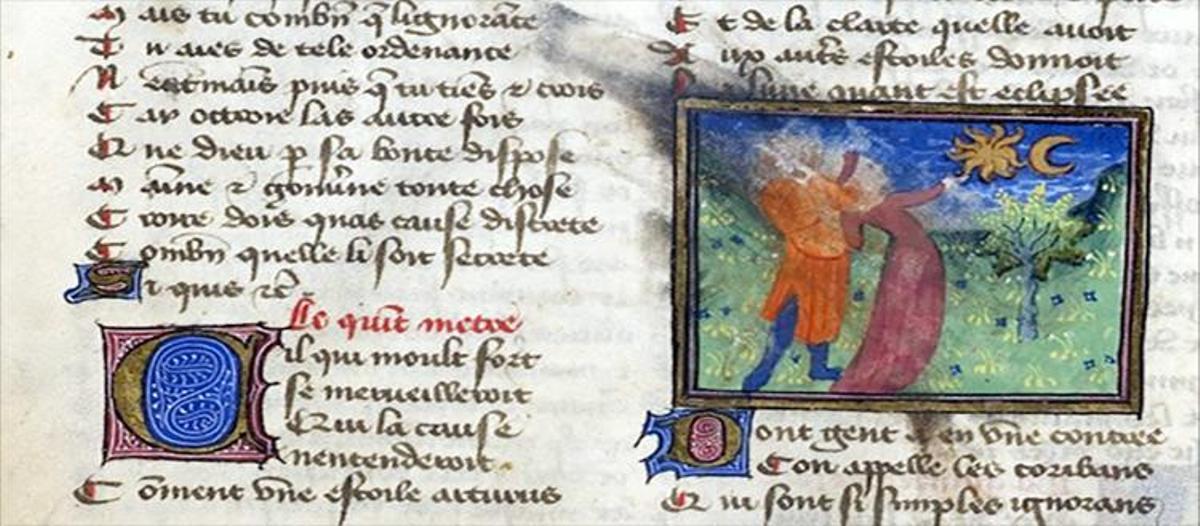 Mais tu combn̄ q̄ lignorance
Tu aies de tele ordenance
Neātmais puis q̄ tu tiens & crois
Car octroie las autre fois
Que dieu p sa bonte dispose
Maine & gouv̄ne toute chose
Croire dois quas cause discrete
Combn̄ quelle li soit secrete
Si quis rē
Le quīt metre
Cil qui moult fort
se merueilleroit
Qui la cause
nentenderoit
Coment vne estoile arturus
Et de la clarte quelle auoit
Aux autrs estoiles donnoit
lune quant est eclipsee
Dont gent a en vne contree
Con appelle les coribans
Qui sont si simples ignorans